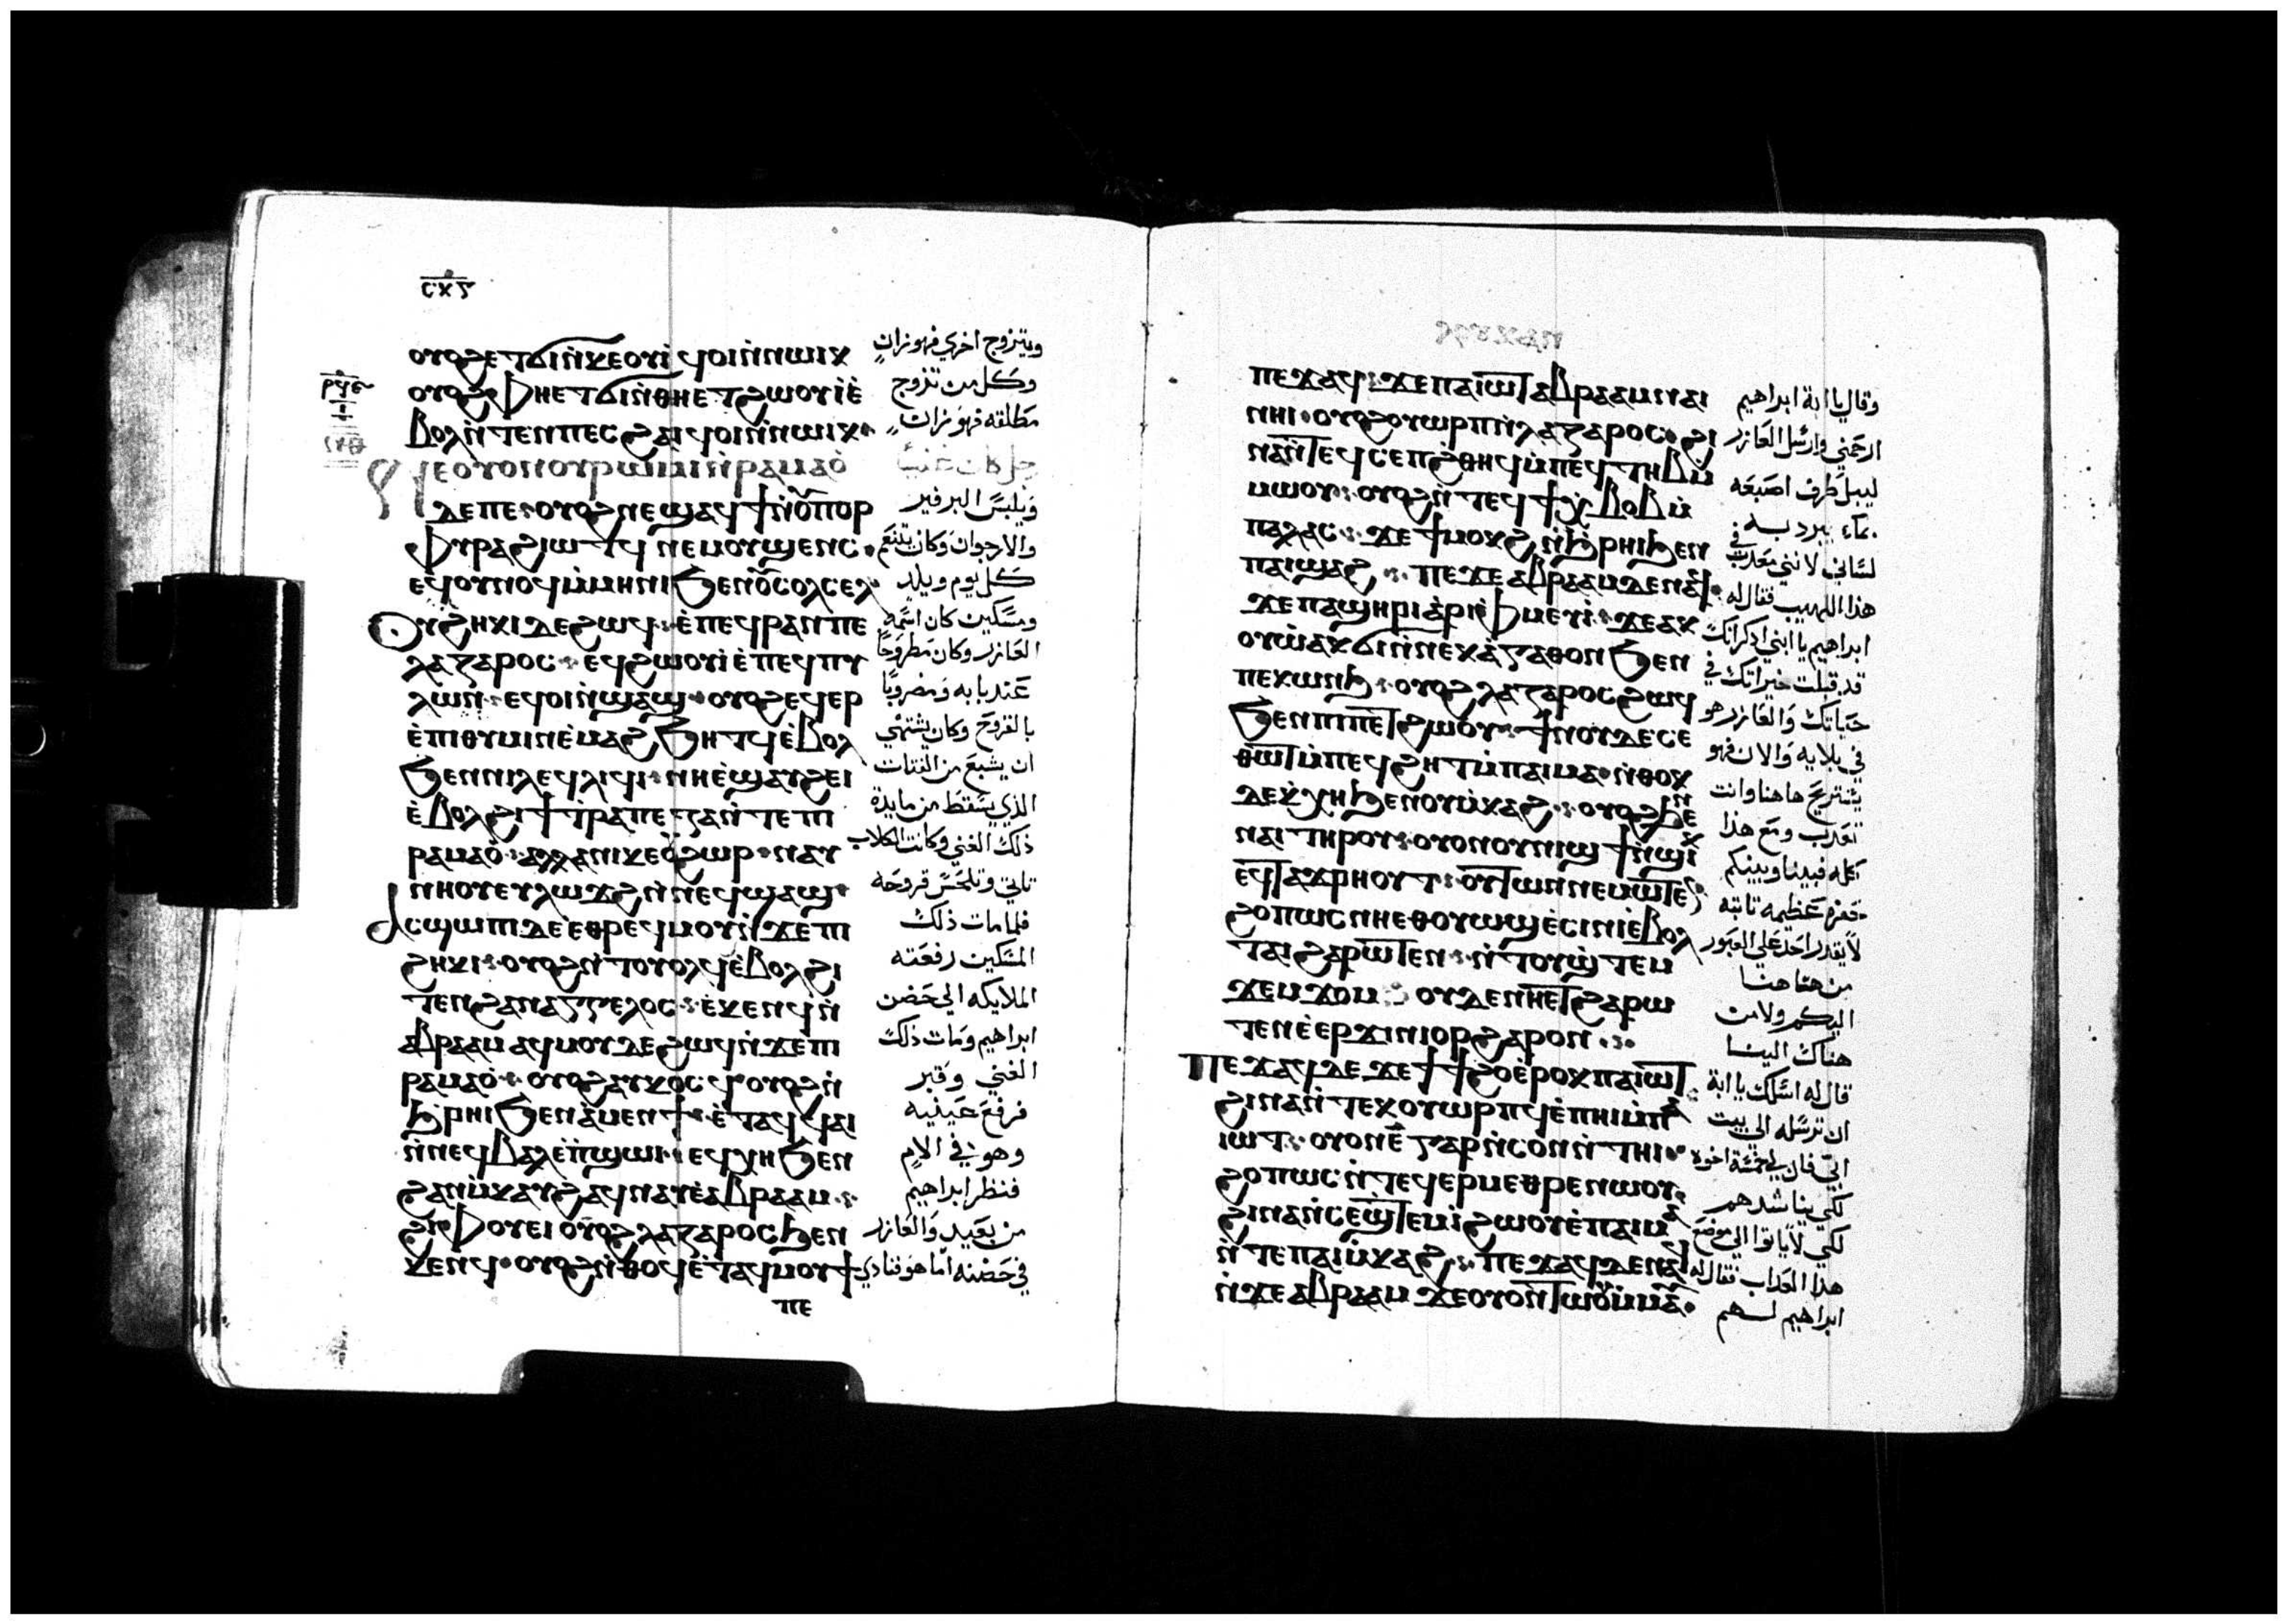 ⲟⲩⲟϩ ⲉⲧϭⲓ ⲛ̀ⲕⲉⲟⲩⲓ̀ ϥⲟⲓ ⲛ̀ⲛⲱⲓⲕ
ⲟⲩⲟϩ ⲫⲏⲉⲧϭⲓ ⲛ̀ⲑⲏⲉⲧϩⲱⲟⲩⲓ ⲉ̀
ⲃⲟⲗ ⲛ̀ⲧⲉⲛ ⲡⲉⲥϩⲁⲓ ϥⲟⲓ ⲛ̀ⲛⲱⲓⲕ
ⲛⲉ ⲟⲩⲟⲛ ⲟⲩⲣⲱⲙⲓ ⲛ̀ⲣⲁⲙⲁⲟ̀
ⲇⲉ ⲡⲉ ⲟⲩⲟϩ ⲛⲉϣⲁϥϯ ⲛ̀ⲟⲩⲡⲟⲣ
ⲫⲩⲣⲁ ϩⲓⲱⲧϥ ⲛⲉⲙ ⲟⲩϣⲉⲛⲥ
ⲉϥⲟⲩⲛⲟϥ ⲙ̀ⲙⲏⲛⲓ ϧⲉⲛ ⲟⲩⲥⲟⲗⲥⲉⲗ
ⲟⲩϩⲏⲕⲓ ⲇⲉ ϩⲱϥ ⲉ̀ⲡⲉϥⲣⲁⲛ ⲡⲉ
ⲗⲁⲍⲁⲣⲟⲥ ⲉϥϩⲱⲟⲩⲓ ⲉ̀ⲡⲉϥⲡⲩ
ⲗⲱⲛ ⲉϥⲟⲓ ⲛ̀ϣⲁϣ ⲟⲩⲟϩ ⲉϥⲉⲣ
ⲉ̀ⲡⲓⲑⲩⲙⲓⲛ ⲉ̀ⲙⲁϩ ϧⲏⲧϥ ⲉ̀ⲃⲟⲗ
ϧⲉⲛ ⲛⲓⲗⲉϥⲗⲓϥⲓ ⲛⲏⲉ̀ϣⲁⲩϩⲉⲓ
ⲉ̀ⲃⲟⲗ ϩⲓ ϯⲧⲣⲁⲡⲉⲍⲁ ⲛ̀ⲧⲉ ⲡⲓ
ⲣⲁⲙⲁⲟ̀ ⲁⲗⲗⲁ ⲛⲓⲕⲉⲟⲩϩⲱⲣ ⲛⲁⲩ
ⲛⲏⲟⲩ ⲉⲩⲗⲱϫϩ ⲛ̀ⲛⲉϥϣⲁϣ
ⲁⲥϣⲱⲡⲓ ⲇⲉ ⲉ̀ⲑⲣⲉϥⲙⲟⲩ ⲛ̀ϫⲉ ⲡⲓ
ϩⲏⲕⲓ ⲟⲩⲟϩ ⲛ̀ⲧⲟⲩⲟⲗϥ ⲉ̀ⲃⲟⲗ ϩⲓ
ⲧⲉⲛ ϩⲁⲛⲁⲅⲅⲉⲗⲟⲥ ⲉ̀ⲕⲉⲛϥ ⲛ̀
ⲁⲃⲣⲁⲁⲙ ⲁϥⲙⲟⲩ ⲇⲉ ϩⲱϥ ⲛ̀ϫⲉ ⲡⲓ
ⲣⲁⲙⲁⲟ̀ ⲟⲩⲟϩ ⲁⲩⲕⲟⲥϥ ⲟⲩⲟϩ ⲛ̀
ϧⲣⲏⲓ ϧⲉⲛ ⲁ̀ⲙⲉⲛϯ ⲉ̀ⲧⲁϥϥⲁⲓ
ⲛ̀ⲛⲉϥⲃⲁⲗ ⲉ̀ⲡ̀ϣⲱⲓ ⲉϥⲭⲏ ϧⲉⲛ
ϩⲁⲛⲙ̀ⲕⲁⲩϩ ⲁϥⲛⲁⲩ ⲉ̀ⲁⲃⲣⲁⲁⲙ
ϩⲓ ⲫⲟⲩⲉⲓ ⲟⲩⲟϩ ⲗⲁⲍⲁⲣⲟⲥ ϧⲉⲛ
ⲕⲉⲛϥ ⲟⲩⲟϩ ⲛ̀ⲑⲟϥ ⲉ̀ⲧⲁϥⲙⲟⲩϯ
ⲡⲉ
ويتزوج اخري فهو زان
وكل من تزوج
مطلقه فهو زان
ويلبس البرفير
والارجوان وكان يتنعم
كل يوم ويلد
ومسكين كان اسمه
العازر وكان مطروحا
عند بابه ومضروبا
بالقروح وكان يشتهي
ان يشبع من الفتات
الذي يسقط من مايدة
ذلك الغني وكانت الكلاب
تاتي وتلحس قروحه
فلما مات ذلك
المسكين رفعته
الملايكه الي حضن
ابراهيم ومات ذلك
الغني وقبر
فرفع عينيه
وهو في الالم
فنظر ابراهيم
من بعيد والعازر
في حضنه اما هو فنادي
ⲡⲉϫⲁϥ ϫⲉ ⲡⲁⲓⲱⲧ ⲁⲃⲣⲁⲁⲙ ⲛⲁⲓ
ⲛⲏⲓ ⲟⲩⲟϩ ⲟⲩⲱⲣⲡ ⲛ̀ⲗⲁⲍⲁⲣⲟⲥ ϩⲓ
ⲛⲁ ⲛ̀ⲧⲉϥⲥⲉⲡ ϩⲑⲏϥ ⲙ̀ⲡⲉϥⲧⲏⲃ ⲙ̀
ⲙⲱⲟⲩ ⲟⲩⲟϩ ⲛ̀ⲧⲉϥϯⲭⲃⲟⲃ ⲙ̀
ⲡⲁⲗⲁⲥ ϫⲉ ϯⲙⲟⲕϩ ⲛ̀ϧⲣⲏⲓ ϧⲉⲛ
ⲡⲁⲓϣⲁϩ ⲡⲉϫⲉ ⲁⲃⲣⲁⲁⲙ ⲇⲉ ⲛⲁϥ
ϫⲉ ⲡⲁϣⲏⲣⲓ ⲁ̀ⲣⲓⲫⲙⲉⲩⲓ̀ ϫⲉ ⲁⲕ
ⲟⲩⲱ̀ ⲁⲕϭⲓ ⲛ̀ⲛⲉⲕⲁ̀ⲅⲁⲑⲟⲛ ϧⲉⲛ
ⲡⲉⲕⲱⲛϧ ⲟⲩⲟϩ ⲗⲁⲍⲁⲣⲟⲥ ϩⲱϥ
ϧⲉⲛ ⲡⲓⲡⲉⲧϩⲱⲟⲩ ϯⲛⲟⲩ ⲇⲉ ⲥⲉ
ⲑⲱⲧ ⲙ̀ⲡⲉϥϩⲏⲧ ⲙ̀ⲡⲁⲓⲙⲁ ⲛ̀ⲑⲟⲕ
ⲇⲉ ⲕ̀ⲭⲏ ϧⲉⲛ ⲟⲩⲙ̀ⲕⲁϩ ⲟⲩⲟϩ ϧⲉⲛ
ⲛⲁⲓ ⲧⲏⲣⲟⲩ ⲟⲩⲟⲛ ⲟⲩⲛⲓϣϯ ⲛ̀ϣⲓⲕ
ⲉϥⲧⲁϫⲣⲏⲟⲩⲧ ⲟⲩⲧⲱⲛ ⲛⲉⲙⲱⲧⲉⲛ
ϩⲟⲡⲱⲥ ⲛⲏⲉⲑⲟⲩⲱϣ ⲉ̀ⲥⲓⲛⲓ ⲉ̀ⲃⲟⲗ
ⲧⲁⲓ ϩⲁⲣⲱⲧⲉⲛ ⲛ̀ⲧⲟⲩϣ̀ⲧⲉⲙ
ϫⲉⲙϫⲟⲙ ⲟⲩⲇⲉ ⲛⲏⲉⲧϩⲁⲣⲱ
ⲧⲉⲛ ⲉ̀ⲉⲣϫⲓⲛⲓⲟⲣ ϩⲁⲣⲟⲛ
ⲡⲉϫⲁϥ ⲇⲉ ϫⲉ ϯϯϩⲟ ⲉ̀ⲣⲟⲕ ⲡⲁⲓⲱⲧ
ϩⲓⲛⲁ ⲛ̀ⲧⲉⲕⲟⲩⲱⲣⲡϥ ⲉ̀ⲡⲏⲓ ⲙ̀ⲡⲁ
ⲓⲱⲧ ⲟⲩⲟⲛ ⲉ̄ ⲅⲁⲣ ⲛ̀ⲥⲟⲛ ⲛ̀ⲧⲏⲓ
ϩⲟⲡⲱⲥ ⲛ̀ⲧⲉϥⲉⲣⲙⲉⲑⲣⲉ ⲛⲱⲟⲩ
ϩⲓⲛⲁ ⲛ̀ⲥⲉϣ̀ⲧⲉⲙⲓ̀ ϩⲱⲟⲩ ⲉ̀ⲡⲁⲓⲙⲁ
ⲛ̀ⲧⲉ ⲡⲁⲓⲙ̀ⲕⲁϩ ⲡⲉϫⲁϥ ⲇⲉ ⲛⲁϥ
ⲛ̀ϫⲉ ⲁⲃⲣⲁⲁⲙ ϫⲉ ⲟⲩⲟⲛⲧⲱⲟⲩ ⲙ̀ⲙⲁⲩ
وقال يا ابة ابراهيم
ارحمني وارسل العازر
ليبل طرف اصبعه
بماء يبرد به
لساني لانني معذب في
هذا اللهيب فقال له
ابراهيم يا ابني اذكر انك
قد قبلت خيراتك في
حياتك والعازر هو
في بلاياه والان فهو
يستريح هاهنا وانت
تعذب ومع هذا
كله فبيننا وبينكم
حفره عظيمه ثابته
لا يقدر احد علي العبور
من هاهنا
اليكم ولا من
هناك الينا
قال له اسلك يا ابة
ان ترسله الي بيت
ابي فان لي خمسة اخوه
لكي يناشدهم
لكي لا ياتوا الي موضع
هذا العذاب فقال له
ابراهيم لهم